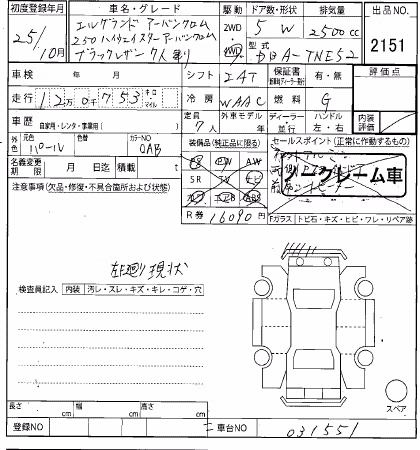 初度登録年月 車名・グレード 駆動 ドア数・形状 排気量 出品NO
25/10月 エルグランド アーバンクロム 2WD 5 W 2500cc 2151
250ハイウェイスターアーバンクロム 4WD 型式
ブラックレザン 7人乗り DBA-TNE52
車検 年 月 シフト IAT 保証書 有・無 評価点
走行 12万0千753 キロ マイル 冷房 WAAC 燃料 G
車歴 自家用・レンタ・事業用( ) 定員 7人 外車モデル 年 ディーラー 並行 ハンドル 左・右 内装評価
外色 元色 パール 色替 カラーNO QAB 装備品(純正品に限る) セールスポイント(正常に作動するもの)
名義変更期限 月 日迄 積載 t PS PW AW
注意事項(欠品・修復・不具合箇所および状態) SR TV ナビ ノークレーム車
カワ エアB ABS
R券 16090円 Fガラス トビ石・キズ・ヒビ・ワレ・リペア跡
左廻り現状
検査員記入 内装 汚レ・スレ・キズ・キレ・コゲ・穴
スペア
長さ cm 幅 cm 高さ cm
登録NO 車台NO 031551